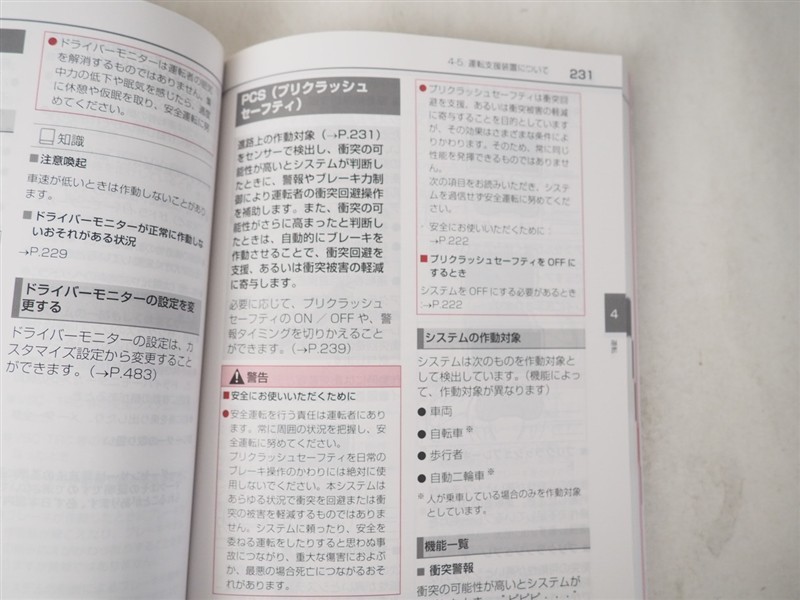 ●ドライバーモニターは運転者の眠気
を解消するものではありません。集
中力の低下や眠気を感じたら、適度
に休憩や仮眠を取り、安全運転に努
めてください。
知識
■注意喚起
車速が低いときは作動しないことがあり
ます。
■ドライバーモニターが正常に作動しな
いおそれがある状況
→P.229
ドライバーモニターの設定を変
更する
ドライバーモニターの設定は、カ
スタマイズ設定から変更すること
ができます。（→P.483）
4-5. 運転支援装置について
231
PCS（プリクラッシュ
セーフティ）
進路上の作動対象（→P.231）
をセンサーで検出し、衝突の可
能性が高いとシステムが判断し
たときに、警報やブレーキ力制
御により運転者の衝突回避操作
を補助します。また、衝突の可
能性がさらに高まったと判断し
たときは、自動的にブレーキを
作動させることで、衝突回避を
支援、あるいは衝突被害の軽減
に寄与します。
必要に応じて、プリクラッシュ
セーフティの ON ／ OFF や、警
報タイミングを切りかえること
ができます。（→P.239）
警告
■安全にお使いいただくために
●安全運転を行う責任は運転者にあり
ます。常に周囲の状況を把握し、安
全運転に努めてください。
プリクラッシュセーフティを日常の
ブレーキ操作のかわりには絶対に使
用しないでください。本システムは
あらゆる状況で衝突を回避または衝
突の被害を軽減するものではありま
せん。システムに頼ったり、安全を
委ねる運転をしたりすると思わぬ事
故につながり、重大な傷害におよぶ
か、最悪の場合死亡につながるおそ
れがあります。
●プリクラッシュセーフティは衝突回
避を支援、あるいは衝突被害の軽減
に寄与することを目的としています
が、その効果はさまざまな条件によ
りかわります。そのため、常に同じ
性能を発揮できるものではありませ
ん。
次の項目をお読みいただき、システ
ムを過信せず安全運転に努めてくだ
さい。
・安全にお使いいただくために：
→P.222
■プリクラッシュセーフティを OFF に
するとき
システムを OFF にする必要があるとき
：→P.222
システムの作動対象
システムは次のものを作動対象と
して検出しています。（機能によっ
て、作動対象が異なります）
●車両
●自転車※
●歩行者
●自動二輪車※
※人が乗車している場合のみを作動対象
としています。
機能一覧
■衝突警報
衝突の可能性が高いとシステムが
4
運転